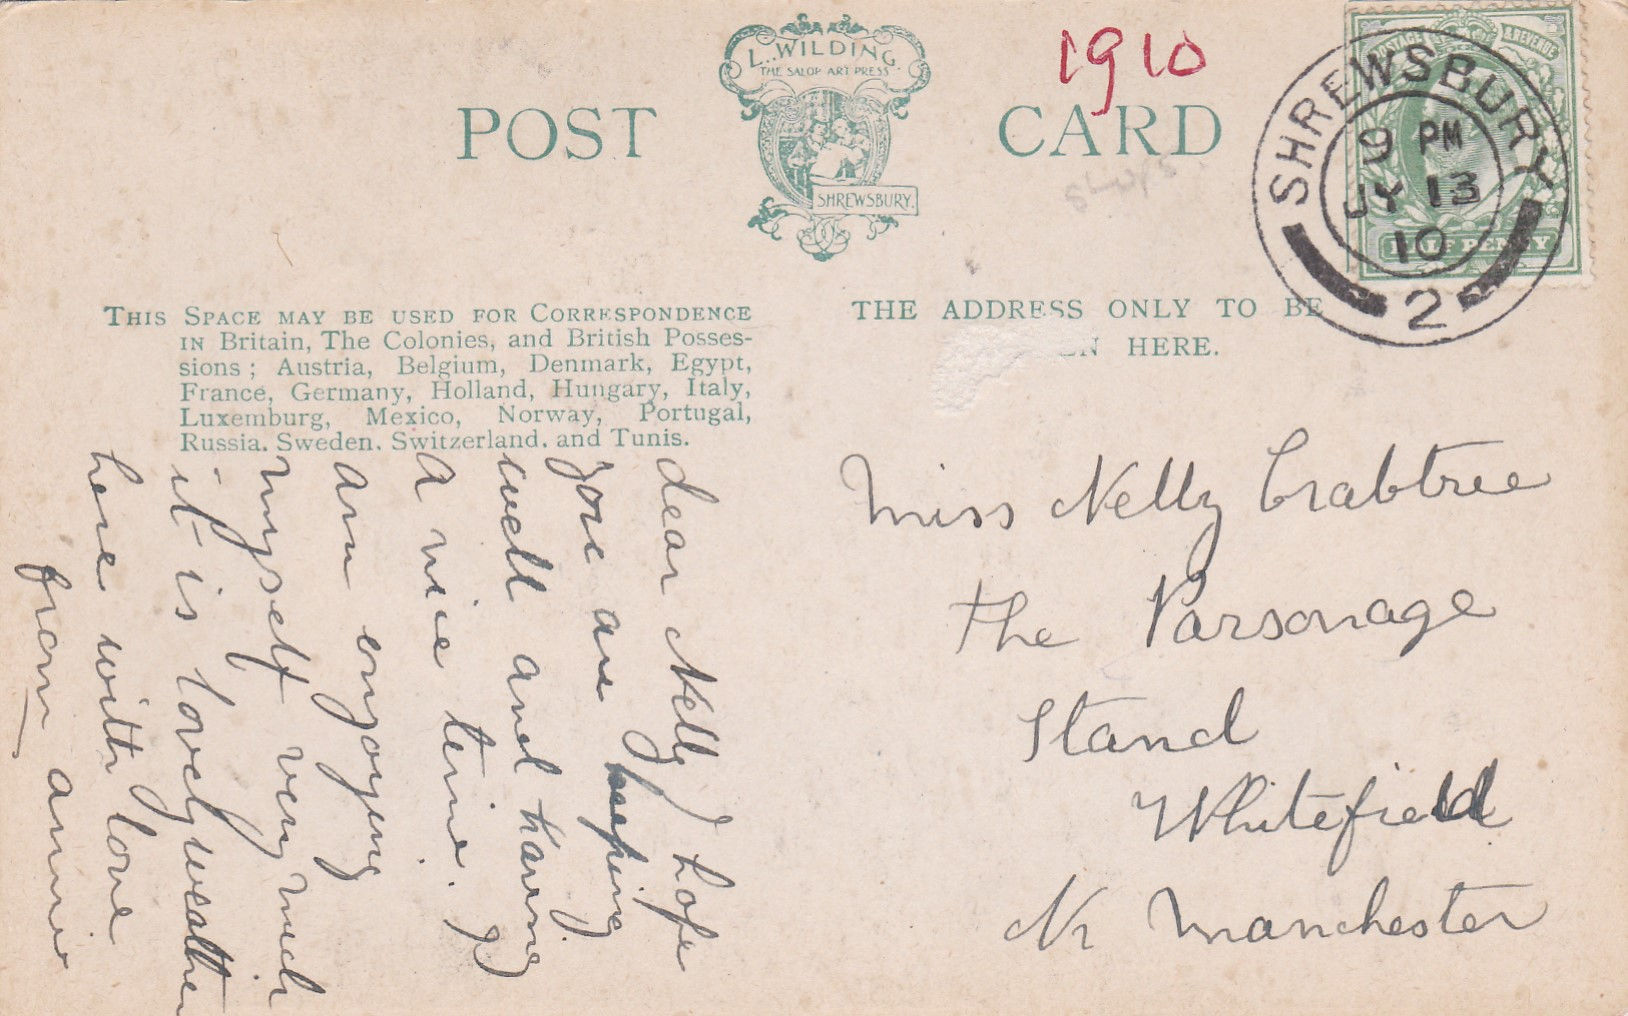 L. WILDING.
THE SALOP ART PRESS
SHREWSBURY.
POST CARD
1910
SHREWSBURY
9 PM
JY 13
10
2
POSTAGE & REVENUE
HALF PENNY
THIS SPACE MAY BE USED FOR CORRESPONDENCE
IN Britain, The Colonies, and British Posses-
sions; Austria, Belgium, Denmark, Egypt,
France, Germany, Holland, Hungary, Italy,
Luxemburg, Mexico, Norway, Portugal,
Russia, Sweden, Switzerland, and Tunis.
THE ADDRESS ONLY TO BE
EN HERE.
dear Nelly I hope
you are keeping
well and having
a nice time. I
am enjoying
myself very much
it is lovely weather
here with love
from annie
Miss Nelly Crabtree
The Parsonage
Stand
Whitefield
Nr Manchester